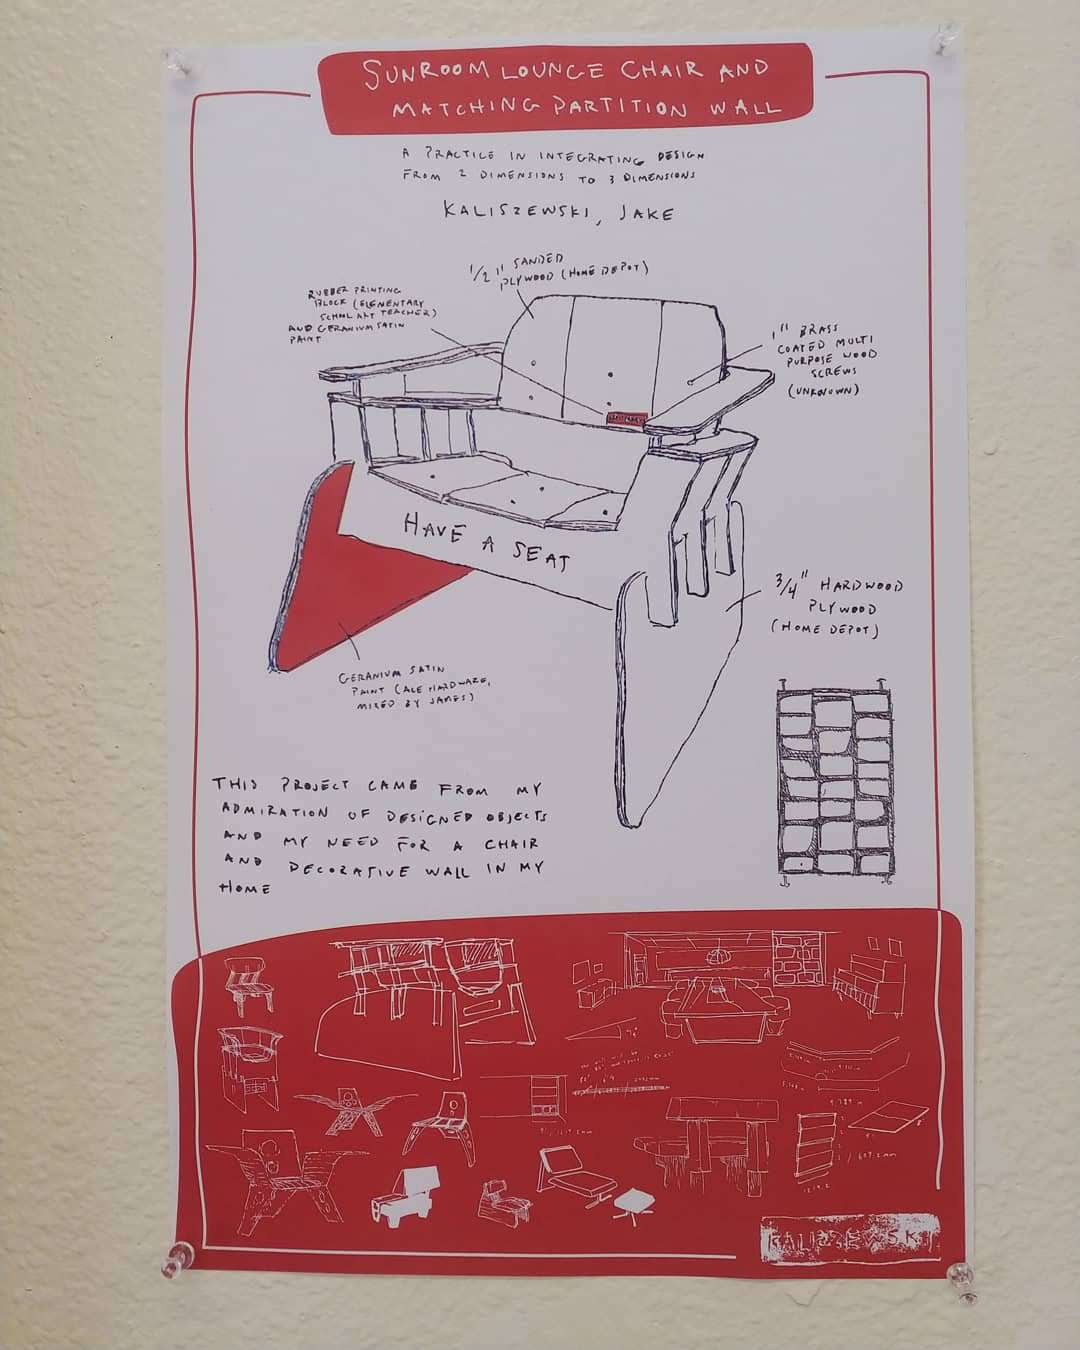 SUNROOM LOUNGE CHAIR AND
MATCHING PARTITION WALL
A PRACTICE IN INTEGRATING DESIGN
FROM 2 DIMENSIONS TO 3 DIMENSIONS
KALISZEWSKI, JAKE
1/2" SANDED
PLYWOOD (HOME DEPOT)
RUBBER PRINTING
BLOCK (ELEMENTARY
SCHOOL ART TEACHER)
AND GERANIUM SATIN
PAINT
1" BRASS
COATED MULTI
PURPOSE WOOD
SCREWS
(UNKNOWN)
HAVE A SEAT
3/4" HARDWOOD
PLYWOOD
(HOME DEPOT)
GERANIUM SATIN
PAINT (ACE HARDWARE,
MIXED BY JAMES)
THIS PROJECT CAME FROM MY
ADMIRATION OF DESIGNED OBJECTS
AND MY NEED FOR A CHAIR
AND DECORATIVE WALL IN MY
HOME
KALISZEWSKI